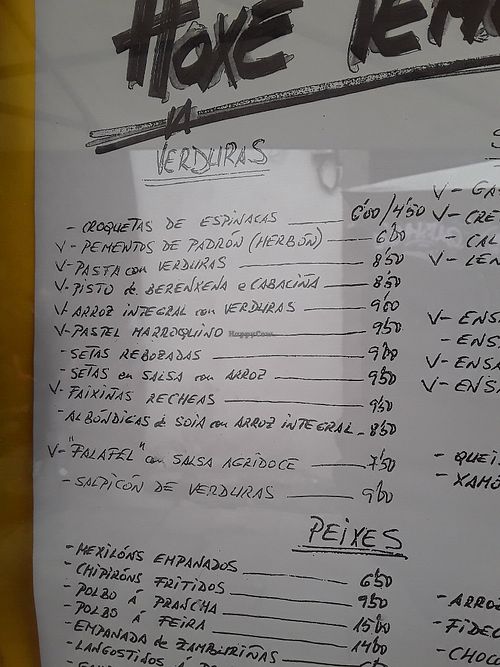 HOXE TEMO
VERDURAS
- CROQUETAS DE ESPINACAS 6'00/4'50
V- PEMENTOS DE PADRÓN (HERBÓN) 6'00
V- PASTA con VERDURAS 8'50
V- PISTO de BERENXENA e CABACIÑA 8'50
V- ARROZ INTEGRAL con VERDURAS 9'00
V- PASTEL MARROQUINO 9'50
- SETAS REBOZADAS 9'00
- SETAS en SALSA con ARROZ 9'50
V- FAIXIÑAS RECHEAS 9'50
- ALBÓNDIGAS de SOIA con ARROZ INTEGRAL - 8'50
V- "FALAFEL" con SALSA AGRIDOCE 7'50
- SALPICÓN DE VERDURAS 9'00
PEIXES
- MEXILÓNS EMPANADOS 6'50
- CHIPIRÓNS FRITIDOS 9'50
- POLBO Á PRANCHA 15'00
- POLBO Á FEIRA 14'00
- EMPANADA de ZAMBURIÑAS
- LANGOSTIÑOS Á
V- GA
V- CRE
- CAL
V- LEN
V- ENS
- ENS
V- ENSA
V- ENSA
- QUEI
- XAMÓ
- ARROZ
- FIDEO
- CHOC
HappyCow